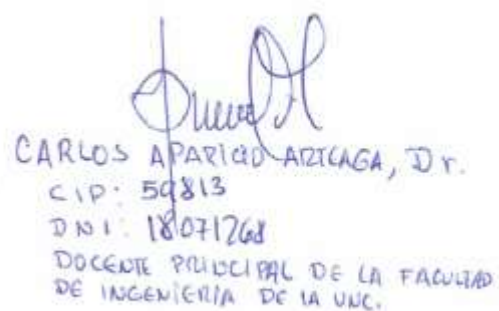 CARLOS APARICIO ARTEAGA, Dr.
CIP: 59813
DNI: 18071268
DOCENTE PRINCIPAL DE LA FACULTAD
DE INGENIERIA DE LA UNC.